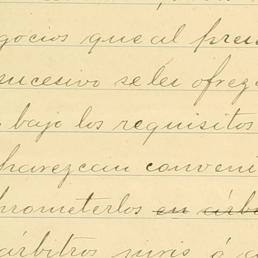 gocios que al pres
sucesivo se les ofrez
bajo los requisitos
parezcan conveni
prometerlos en árbi
árbitros juris ó a